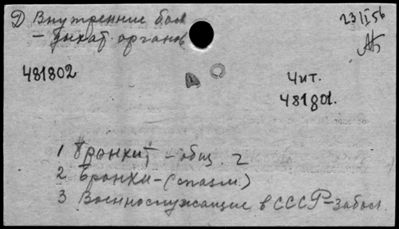 Д) Внутренние бол
23/I 56
- дыхат. органов
481802
Чит.
481801.
1 Бронхит - общ. 2
2 Бронхи - (спазм.)
3 Военнослужащие в СССР - забол.